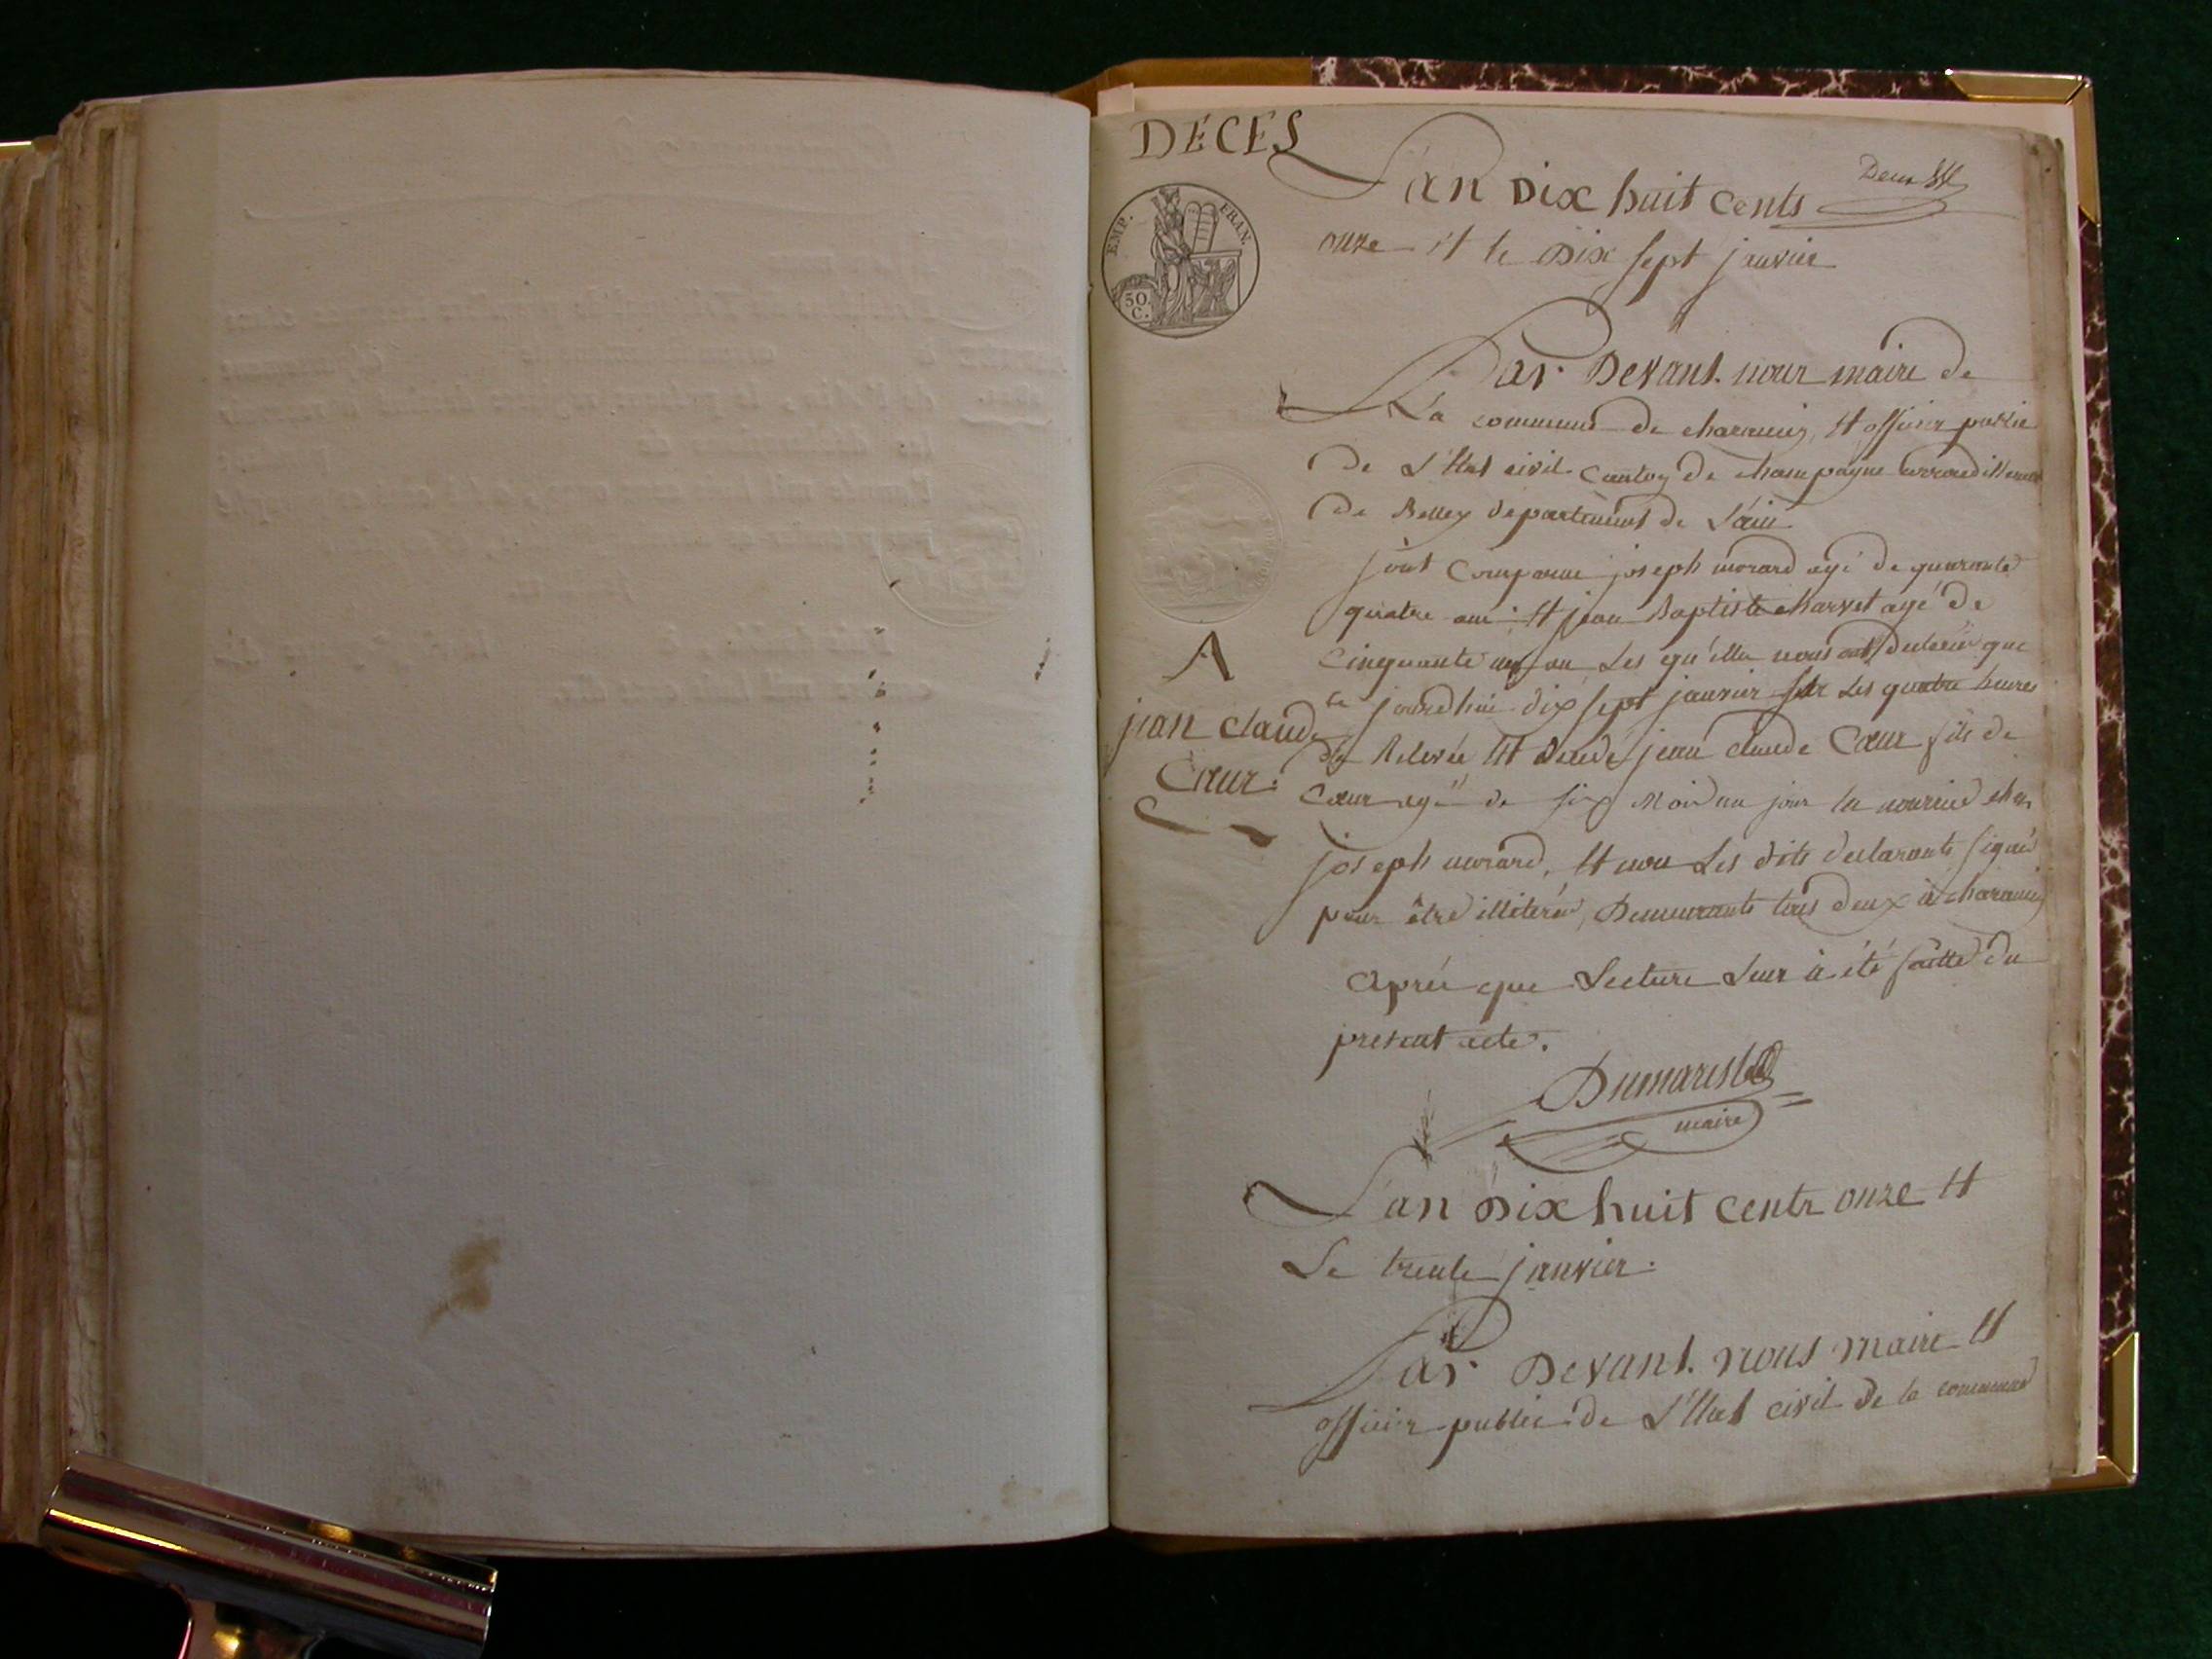 DÉCÈS
L'an Dix huit cents
onze et le Dix sept janvier
EMP. FRAN.
50.
C.
Par Devant. nous maire de
La commune de charancin, et officier public
De L'Etat civil Canton De champagne arrondissement
De Belley département de L'ain.
sont Comparue joseph morard agé De quarante
quatre ans et jean Baptiste charvet agé De
A
Cinquante un an Les qu'elle nous ont déclaré que
jean Claude
Cœur.
ce jourdhui dix sept janvier sur Les quatre heures
De Relevée Et décédé jean claude Cœur fils de
Cœur agé de six Mois un jour la nourrice chez
joseph morard, et non Les dits déclarants signé
pour être illiteré, Demeurants tous deux à charancin
Après que Lecture Leur à été faitte du
present acte.
maire
L'an Dix huit cents onze et
Le trente janvier.
Par Devant. nous maire et
officier public de L'Etat civil De la commune